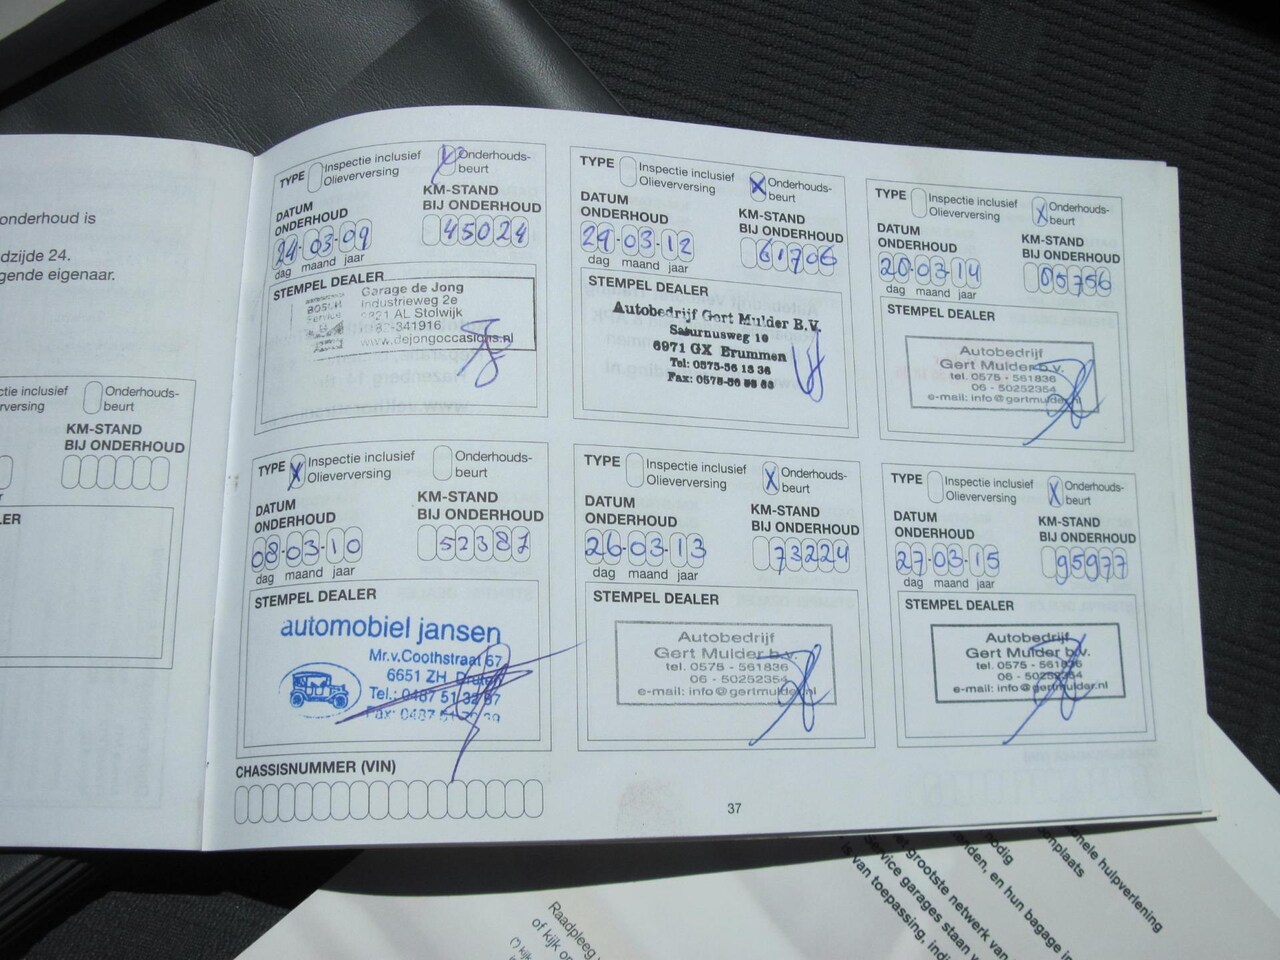 onderhoud is
dzijde 24.
gende eigenaar.
ctie inclusief
verversing
Onderhouds-
beurt
KM-STAND
BIJ ONDERHOUD
LER
TYPE Inspectie inclusief
Olieverversing
Onderhouds-
beurt
DATUM
ONDERHOUD
KM-STAND
BIJ ONDERHOUD
24-03-09
45024
dag maand jaar
STEMPEL DEALER
Garage de Jong
Industrieweg 2e
2821 AL Stolwijk
-341916
www.dejongoccasions.nl
TYPE X Inspectie inclusief
Olieverversing
Onderhouds-
beurt
DATUM
ONDERHOUD
KM-STAND
BIJ ONDERHOUD
08-03-10
52387
dag maand jaar
STEMPEL DEALER
automobiel jansen
Mr.v.Coothstraat 67
6651 ZH Druten
Tel.: 0487 51
Fax: 0487 51
CHASSISNUMMER (VIN)
TYPE Inspectie inclusief
Olieverversing
X Onderhouds-
beurt
DATUM
ONDERHOUD
KM-STAND
BIJ ONDERHOUD
29-03-12
61706
dag maand jaar
STEMPEL DEALER
Autobedrijf Gert Mulder B.V.
Saturnusweg 10
6971 GX Brummen
Tel: 0575-56 18 36
Fax: 0575-56
TYPE Inspectie inclusief
Olieverversing
X Onderhouds-
beurt
DATUM
ONDERHOUD
KM-STAND
BIJ ONDERHOUD
26-03-13
73224
dag maand jaar
STEMPEL DEALER
Autobedrijf
Gert Mulder b.v.
tel. 0575 - 561836
06 - 50252354
e-mail: info@gertmulder.nl
TYPE Inspectie inclusief
Olieverversing
X Onderhouds-
beurt
DATUM
ONDERHOUD
KM-STAND
BIJ ONDERHOUD
20-03-14
dag maand jaar
STEMPEL DEALER
Autobedrijf
Gert Mulder b.v.
tel. 0575 - 561836
06 - 50252354
e-mail: info@gertmulder.nl
TYPE Inspectie inclusief
Olieverversing
X Onderhouds-
beurt
DATUM
ONDERHOUD
KM-STAND
BIJ ONDERHOUD
27-03-15
95977
dag maand jaar
STEMPEL DEALER
Autobedrijf
Gert Mulder b.v.
tel. 0575 - 561836
06 - 50252354
e-mail: info@gertmulder.nl
37
nele hulpverlening
omplaats
nodig
nden, en hun bagage in
et grootste netwerk van
Service garages staan v
is van toepassing, indi
Raadpleeg
of kijk op
(*) kijk